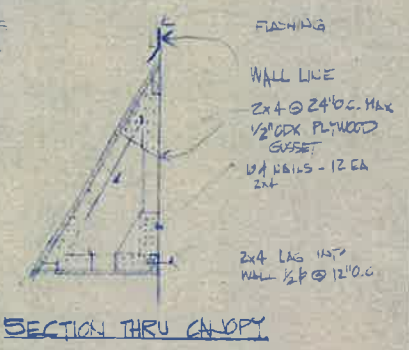 FLASHING
WALL LINE
2x4 @ 24"O.C. MAX
1/2" CDX PLYWOOD
GUSSET
NAILS - 12 EA
2x4
2x4 LAG INTO
WALL 1/2 @ 12"O.C
SECTION THRU CANOPY